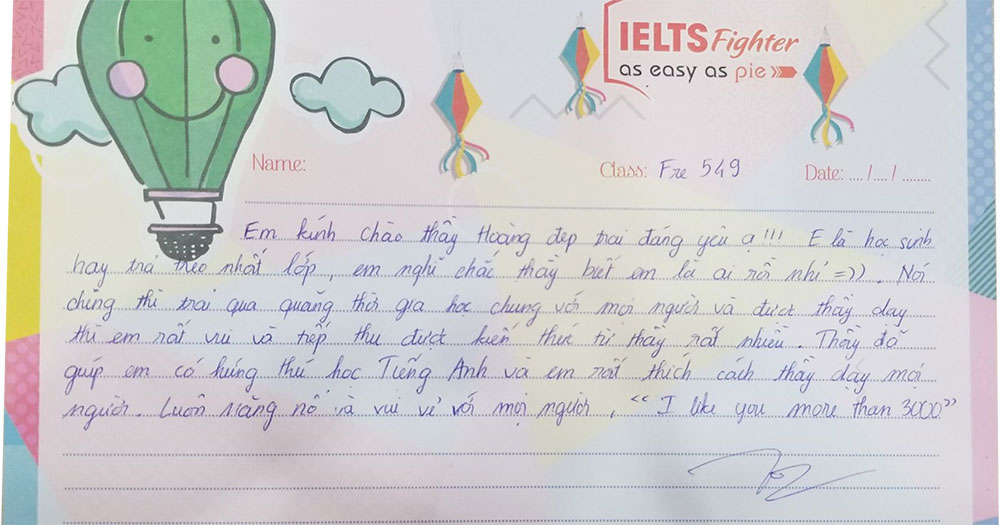 IELTS Fighter
as easy as pie
Name:
Class: Fre 549
Date: .... / .... / .......
Em kính chào thầy Hoàng đẹp trai đáng yêu ạ!!! E là học sinh
hay trả treo nhất lớp, em nghĩ chắc thầy biết em là ai rồi nhỉ =)). Nói
chung thì trải qua quãng thời gia học chung với mọi người và được thầy dạy
thì em rất vui và tiếp thu được kiến thức từ thầy rất nhiều. Thầy đã
giúp em có hứng thú học Tiếng Anh và em rất thích cách thầy dạy mọi
người. Luôn năng nổ và vui vẻ với mọi người, "I like you more than 3000"